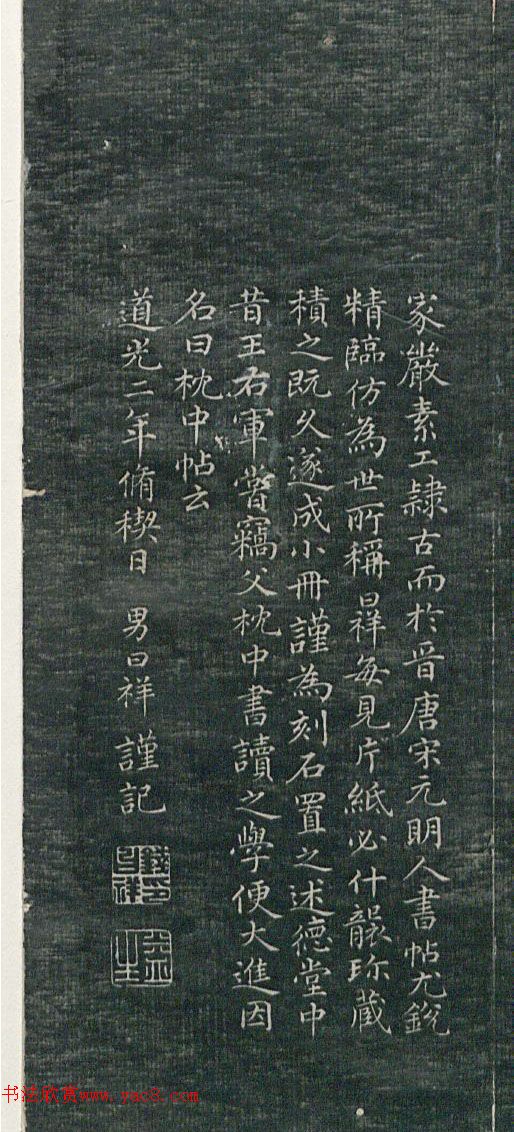 家嚴素工隷古而於晋唐宋元明人書帖尤銳
精臨仿為世所稱曰祥每見片紙必什襲珎藏
積之既久遂成小冊謹為刻石置之述德堂中
昔王右軍嘗竊父枕中書讀之學便大進因
名曰枕中帖云
道光二年脩稧日 男曰祥謹記
书法欣赏www.yac8.com